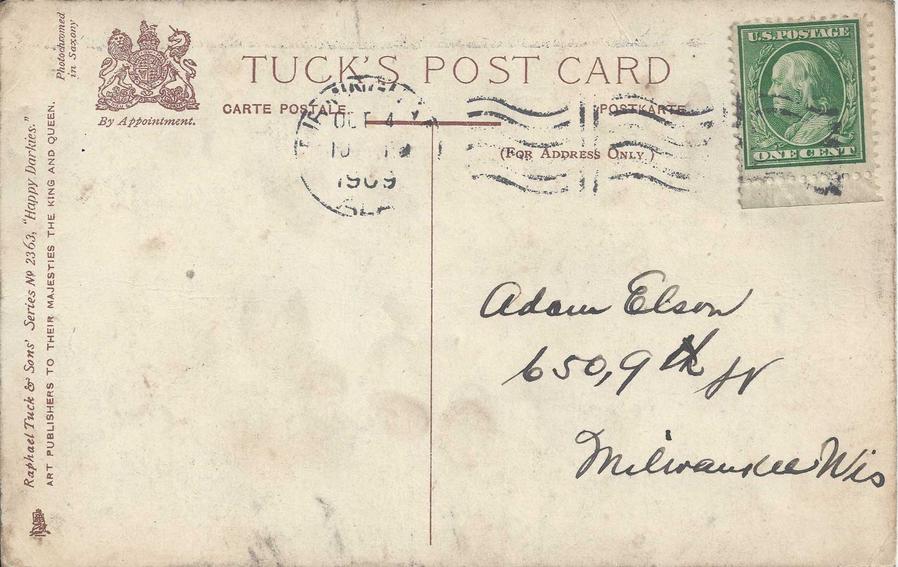 Photochromed
in Saxony
By Appointment.
TUCK'S POST CARD
CARTE POSTALE
POSTKARTE
(FOR ADDRESS ONLY)
U.S. POSTAGE
ONE CENT
OCT 4
1909
Raphael Tuck & Sons' Series No 2363, "Happy Darkies."
ART PUBLISHERS TO THEIR MAJESTIES THE KING AND QUEEN.
Adam Elson
650, 9th St
Milwaukee Wis